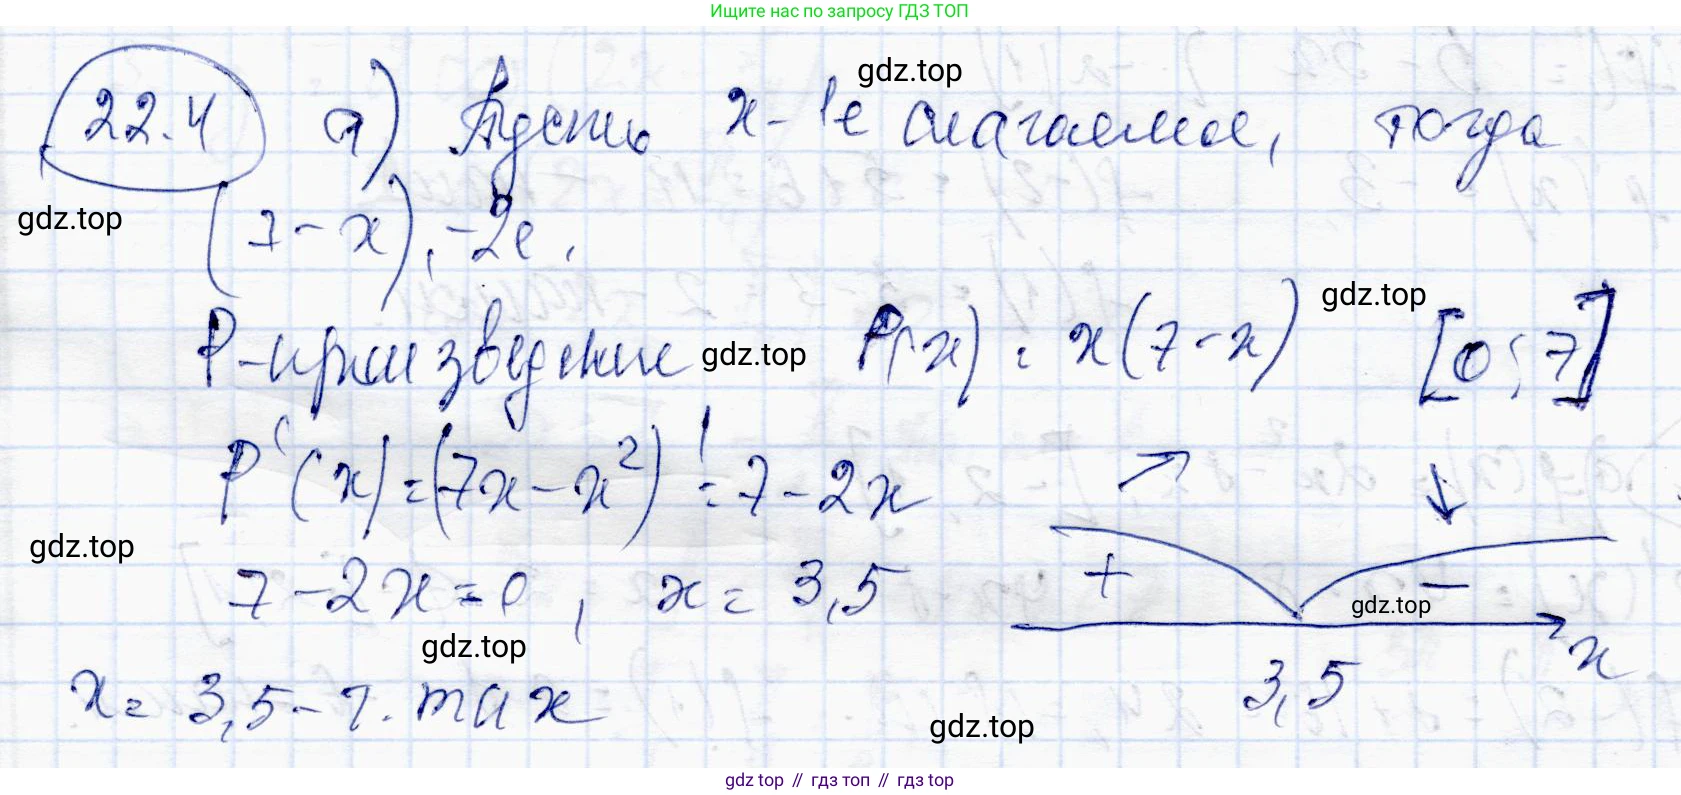 Ищите нас по запросу ГДЗ ТОП
gdz.top
22.4 1) Пусть x - 1е слагаемое, тогда
gdz.top (7 - x), - 2е,
gdz.top
P - произведение gdz.top P(x) = x(7 - x) [0; 7]
P'(x) = (7x - x²)' = 7 - 2x
gdz.top
7 - 2x = 0, x = 3,5 + -
gdz.top
gdz.top x
x = 3,5 - т. max 3,5
gdz.top
gdz top // гдз топ // гдз top